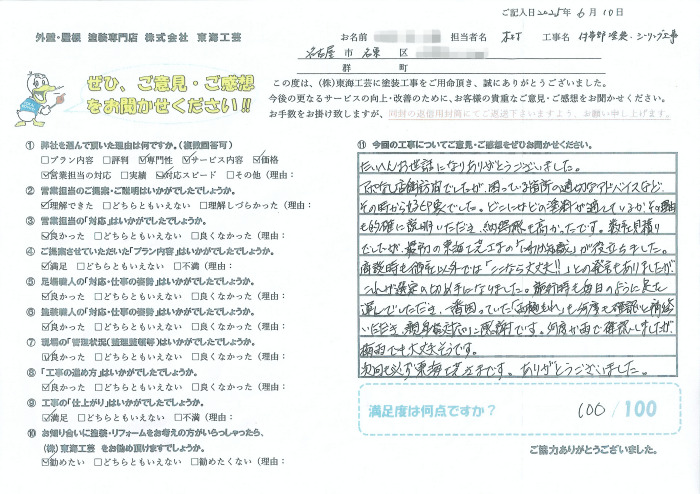 ご記入日2025年 6月 10日
外壁・屋根 塗装専門店 株式会社 東海工芸
お名前 担当者名 木村 工事名 付帯部塗装・シーリング工事
名古屋 市 名東 区
郡 町
ぜひ、ご意見・ご感想
をお聞かせください!!
この度は、(株)東海工芸に塗装工事をご用命頂き、誠にありがとうございました。
今後の更なるサービスの向上・改善のために、お客様の貴重なご意見・ご感想をお聞かせください。
お手数をお掛け致しますが、同封の返信用封筒にてご返送下さいますよう、お願い申し上げます。
① 弊社を選んで頂いた理由は何ですか。(複数回答可)
□プラン内容 □評判 ☑専門性 ☑サービス内容 ☑価格
☑営業担当の対応 □実績 ☑対応スピード □その他(理由:
② 営業担当のご提案・ご説明はいかがでしたでしょうか。
☑理解できた □どちらともいえない □理解しづらかった(理由:
③ 営業担当の「対応」はいかがでしたでしょうか。
☑良かった □どちらともいえない □良くなかった(理由:
④ ご提案させていただいた「プラン内容」はいかがでしたでしょうか。
☑満足 □どちらともいえない □不満(理由:
⑤ 足場職人の「対応・仕事の姿勢」はいかがでしたでしょうか。
☑良かった □どちらともいえない □良くなかった(理由:
⑥ 塗装職人の「対応・仕事の姿勢」はいかがでしたでしょうか。
☑良かった □どちらともいえない □良くなかった(理由:
⑦ 現場の「管理状況(整理整頓等)」はいかがでしたでしょうか。
☑良かった □どちらともいえない □良くなかった(理由:
⑧ 「工事の進め方」はいかがでしたでしょうか。
☑良かった □どちらともいえない □良くなかった(理由:
⑨ 工事の「仕上がり」はいかがでしたでしょうか。
☑満足 □どちらともいえない □不満(理由:
⑩ お知り合いに塗装・リフォームをお考えの方がいらっしゃったら、
(株)東海工芸 をお勧め頂けますでしょうか。
☑勧めたい □どちらともいえない □勧めたくない(理由:
⑪ 今回の工事についてご意見・ご感想をぜひお聞かせください。
たいへんお世話になりありがとうございました。
アポなし店舗訪問でしたが、困っている箇所の適切なアドバイスなど、
その時から好印象でした。どこにはどの塗料が適しているか、その理由
も的確に説明いただき、納得感も高かったです。数社見積り
でしたが、最初の東海工芸さまの「      」が役立ちました。
商談時も御社以外では「ここなら大丈夫!!」との発言もありましたが、
これが選定の切り札になりました。施工時も毎日のように足を
運んでいただき、一番困っていた「雨漏れ」も何度も確認と補修
いただき、親身な対応に感謝です。何度か雨で確認しましたが
梅雨でも大丈夫そうです。
次回も必ず東海工芸さまです。ありがとうございました。
満足度は何点ですか? 100 /100
ご協力ありがとうございました。